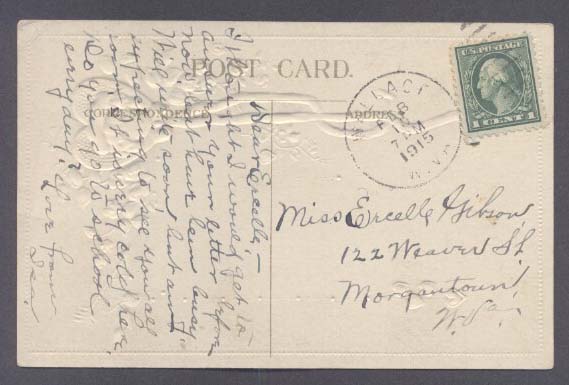 POST CARD.
CORRESPONDENCE
ADDRESS
U.S. POSTAGE
1 CENT 1
WALLACE
FEB
7 AM
1915
W. VA.
Dear Ercelle,—
I thought I would get to
answer your letter before
now but have been busy.
Will write soon but am
expecting to see you all
soon. It is very cold here.
Do you go to school
every day? Love from
Miss Ercelle Gibson
122 Weaver St.
Morgantown,
W. Va.